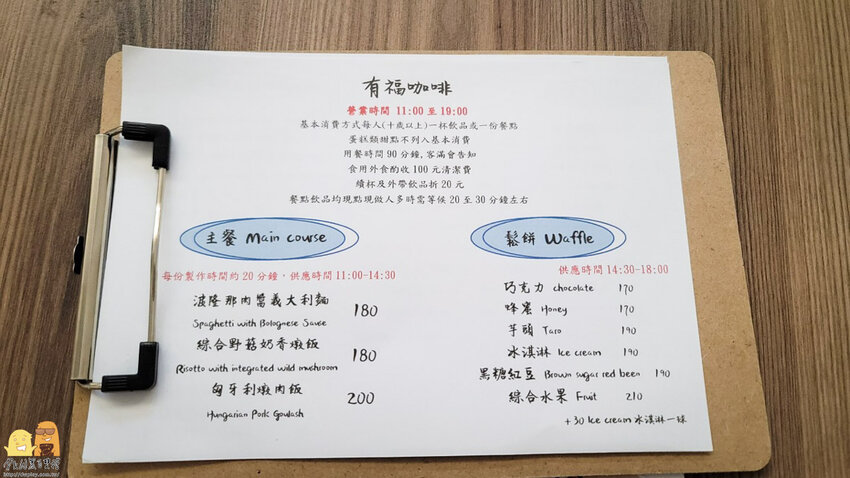 有福咖啡
營業時間 11:00 至 19:00
基本消費方式每人(十歲以上)一杯飲品或一份餐點
蛋糕類甜點不列入基本消費
用餐時間 90 分鐘, 客滿會告知
食用外食酌收 100 元清潔費
續杯及外帶飲品折 20 元
餐點飲品均現點現做人多時需等候 20 至 30 分鐘左右
主餐 Main course
每份製作時間約 20 分鐘，供應時間 11:00-14:30
波隆那肉醬義大利麵 180
Spaghetti with Bolognese Sauce
綜合野菇奶香燉飯 180
Risotto with integrated wild mushroom
匈牙利燉肉飯 200
Hungarian Pork Goulash
鬆餅 Waffle
供應時間 14:30-18:00
巧克力 chocolate 170
蜂蜜 Honey 170
芋頭 Taro 190
冰淇淋 Ice cream 190
黑糖紅豆 Brown sugar red been 190
綜合水果 Fruit 210
+30 Ice cream 冰淇淋一球